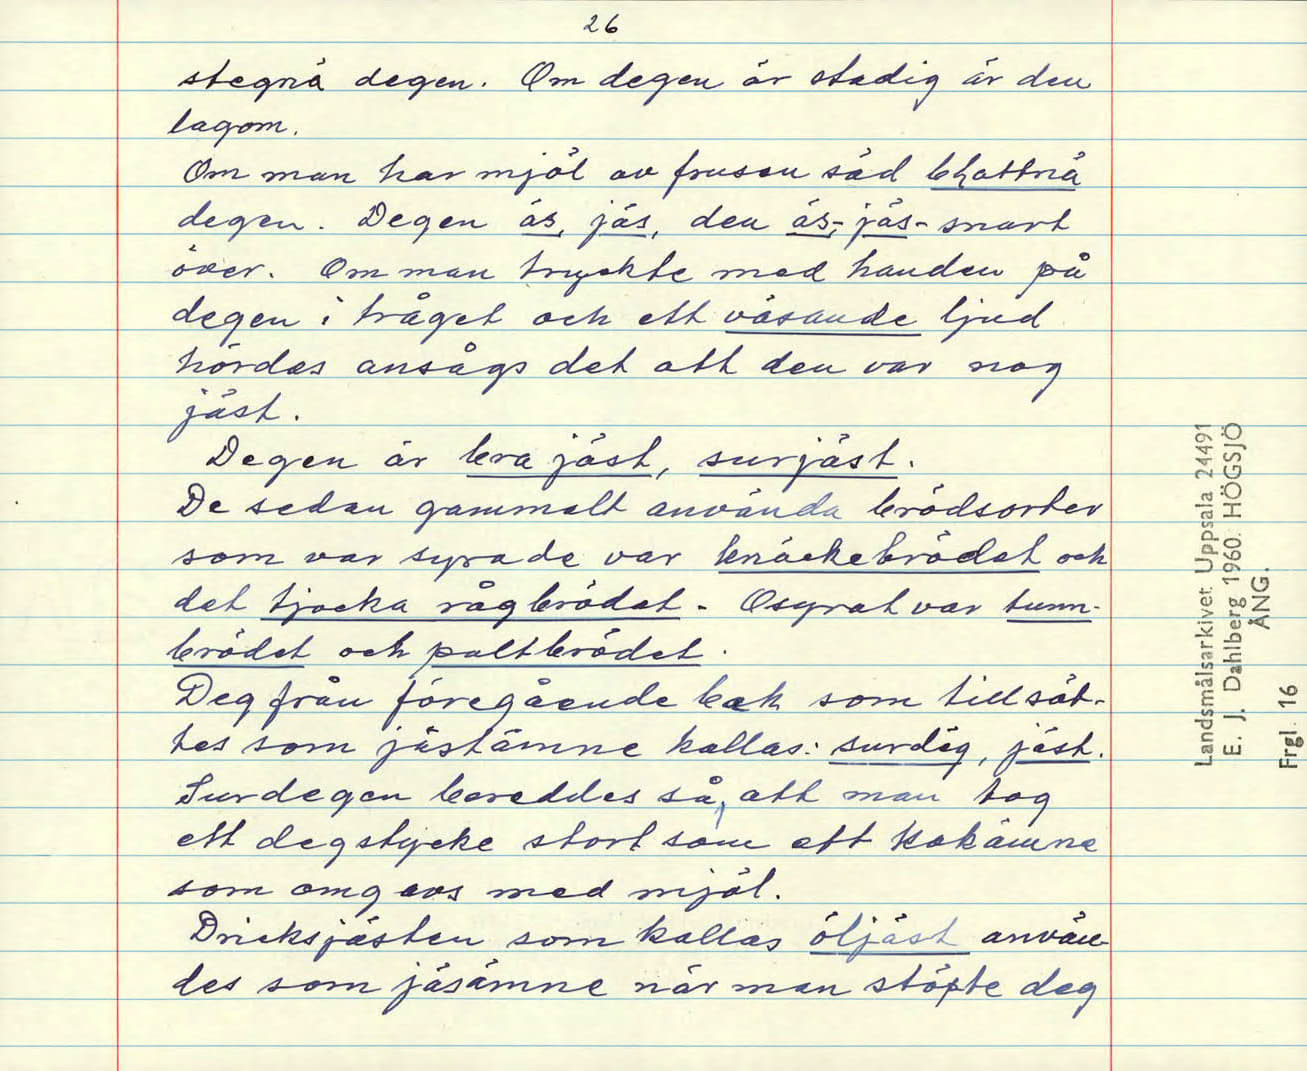 26
stegnä degen. Om degen är stadig är den
lagom.
Om man har mjöl av frusen säd
degen. Degen äs, jäs, den äs-, jäs- snart
över. Om man tryckte med handen på
degen i tråget och ett väsande ljud
hördes ansågs det att den var nog
jäst.
Degen är bra jäst, surjäst.
De sedan gammalt använda brödsorter
som var syrade var knäckebrödet och
det tjocka rågbrödet. Osyrat var tunn-
brödet och paltbrödet.
Deg från föregående bak som tillsät-
tes som jästämne kallas: surdeg, jäst.
Surdegen bereddes så, att man tog
ett degstycke stort som ett kakämne
som omgavs med mjöl.
Dricksjästen som kallas öljäst använ-
des som jäsämne när man stöpte deg
Landsmålsarkivet Uppsala 24491
E. J. Dahlberg 1960. HÖGSJÖ
ÅNG.
Frgl. 16